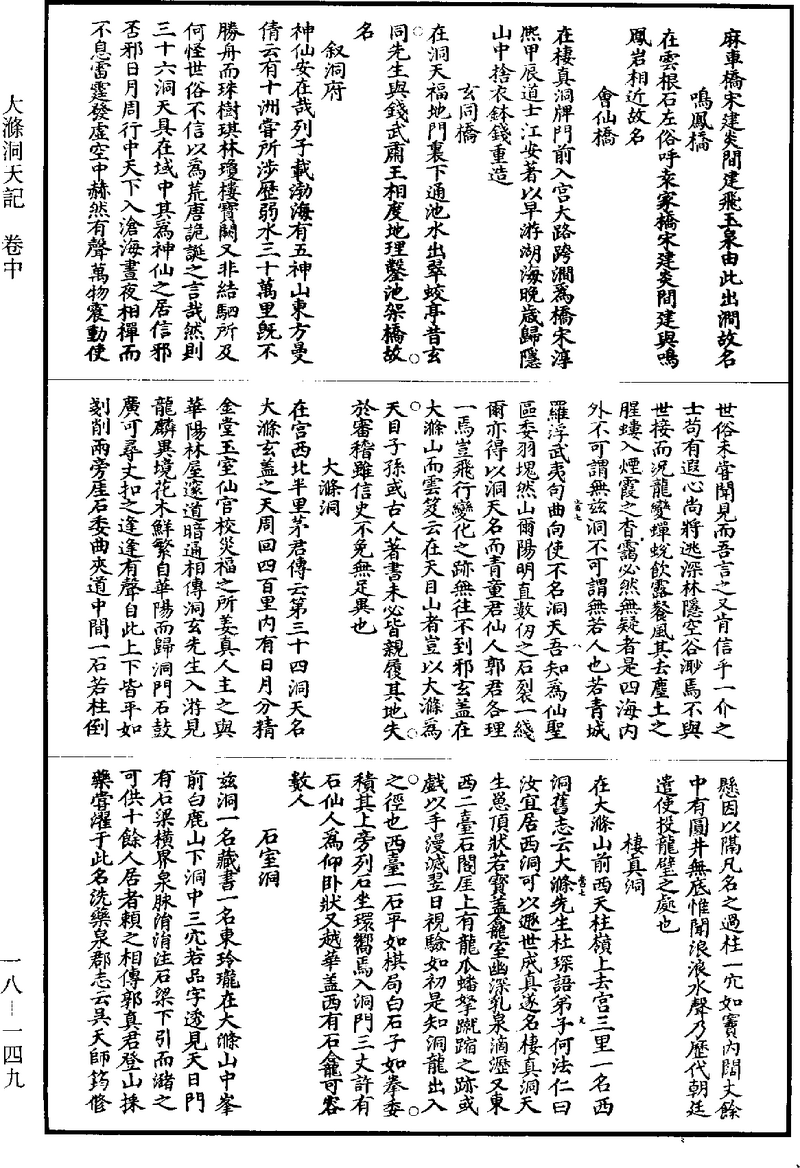 大滌洞天記　卷中
一八—一四九
麻車橋宋建炎間建飛玉泉由此出澗故名
鳴鳳橋
在雲根石左俗呼袁家橋宋建炎間建與鳴
鳳岩相近故名
會仙橋
在棲真洞牌門前入宫大路跨澗爲橋宋淳
熙甲辰道士江安著以早游湖海晚歲歸隱
山中捨衣鉢錢重造
玄同橋
在洞天福地門裏下通池水出翠蛟亭昔玄
同先生與錢武肅王相度地理鑿池架橋故
名
叙洞府
神仙安在哉列子載渤海有五神山東方曼
倩云有十洲嘗所涉歷弱水三十萬里既不
勝舟而珠樹琪林瓊樓寶闕又非結駟所及
何怪世俗不信以爲荒唐詭誕之言哉然則
三十六洞天具在域中其爲神仙之居信邪
否邪日月周行中天下入滄海晝夜相禪而
不息雷霆發虛空中赫然有聲萬物震動使
世俗未嘗聞見而吾言之又肯信乎一介之
士苟有遐心尚將逃深林隱空谷渺焉不與
世接而況龍變蟬蛻飲露餐風其去塵土之
腥螻入煙霞之杳靄必然無疑者是四海内
外不可謂無兹洞不可謂無若人也若青城
羅浮武夷句曲向使不名洞天吾知爲仙聖
區委羽塊然山爾陽明直數仞之石裂一綫
爾亦得以洞天名而青童君仙人郭君各理
一焉豈飛行變化之跡無往不到邪玄蓋在
大滌山而雲笈云在天目山者豈以大滌爲
天目子孫或古人著書未必皆親履其地失
於審稽雖信史不免無足異也
大滌洞
在宫西北半里茅君傳云第三十四洞天名
大滌玄蓋之天周回四百里内有日月分精
金堂玉室仙官校災福之所姜真人主之與
華陽林屋邃道暗通相傳洞玄先生入游見
龍麟異境花木鮮繁自華陽而歸洞門石鼓
廣可尋丈扣之逢逢有聲自此上下皆平如
剗削兩旁厓石委曲夾道中間一石若柱倒
懸因以隔凡名之過柱一穴如竇内闊丈餘
中有圓井無底惟聞浪浪水聲乃歷代朝廷
遣使投龍璧之處也
棲真洞
在大滌山前西天柱嶺上去宫三里一名西
洞舊志云大滌先生杜琛語弟子何法仁曰
汝宜居西洞可以遯世成真遂名棲真洞天
生蒽頂狀若寶蓋龕室幽深乳泉滴瀝又東
西二臺石閣厓上有龍爪蟠拏蹴蹜之跡或
戲以手漫滅翌日視驗如初是知洞龍出入
之徑也西臺一石平如棋局白石子如拳委
積其上旁列石坐環嚮焉入洞門三丈許有
石仙人爲仰卧狀又越華蓋西有石龕可容
數人
石室洞
兹洞一名藏書一名東玲瓏在大滌山中峯
前白鹿山下洞中三穴若品字透見天日門
有石梁横界泉脉涓涓注石梁下引而瀦之
可供十餘人居者賴之相傳郭真君登山採
藥嘗濯于此名洗藥泉郡志云吳天師筠修